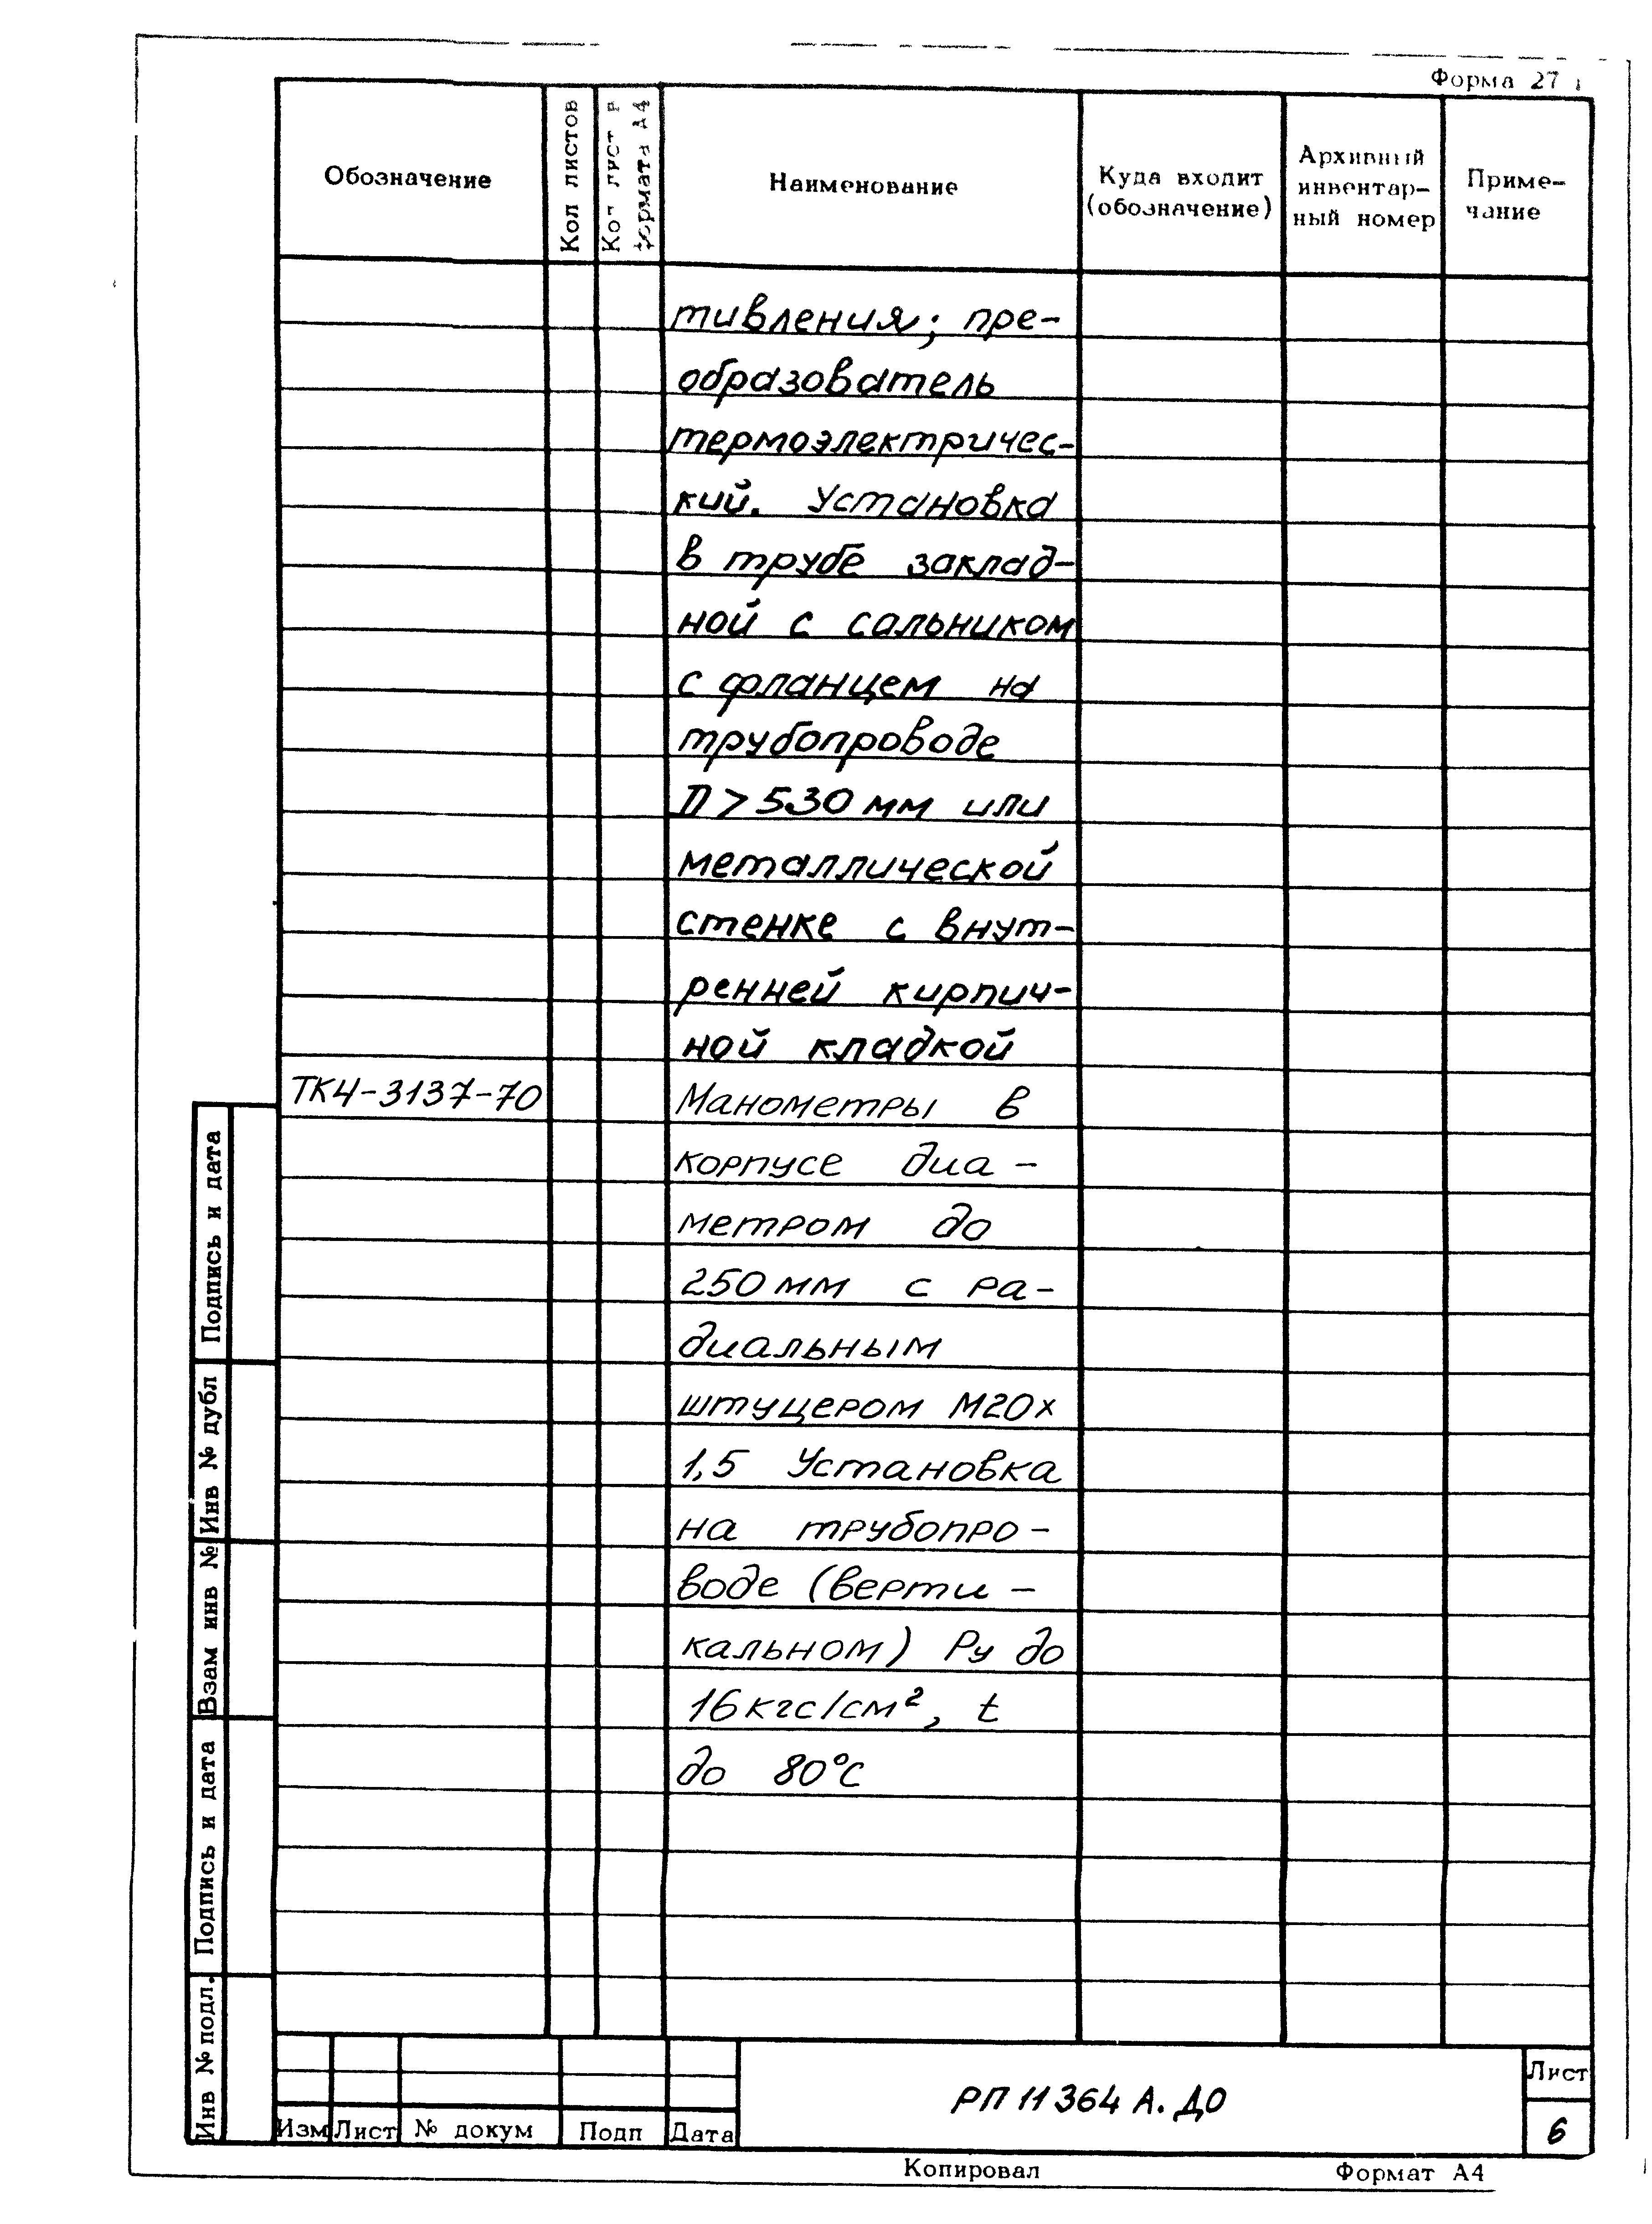 Форма 27
Обозначение
Кол листов
Кол лист в
формата А4
Наименование
Куда входит
(обозначение)
Архивный
инвентар-
ный номер
Приме-
чание
тивления; пре-
образователь
термоэлектричес-
кий. Установка
в трубе заклад-
ной с сальником
с фланцем на
трубопроводе
D > 530 мм или
металлической
стенке с внут-
ренней кирпич-
ной кладкой
ТК4-3137-70
Манометры в
корпусе диа-
метром до
250 мм с ра-
диальным
штуцером М20х
1,5 Установка
на трубопро-
воде (верти-
кальном) Ру до
16 кгс/см², t
до 80°С
Подпись и дата
Инв № дубл
Взам инв №
Подпись и дата
Инв № подл.
Изм Лист № докум Подп Дата
РП 11364 А. ДО
Лист
6
Копировал
Формат А4